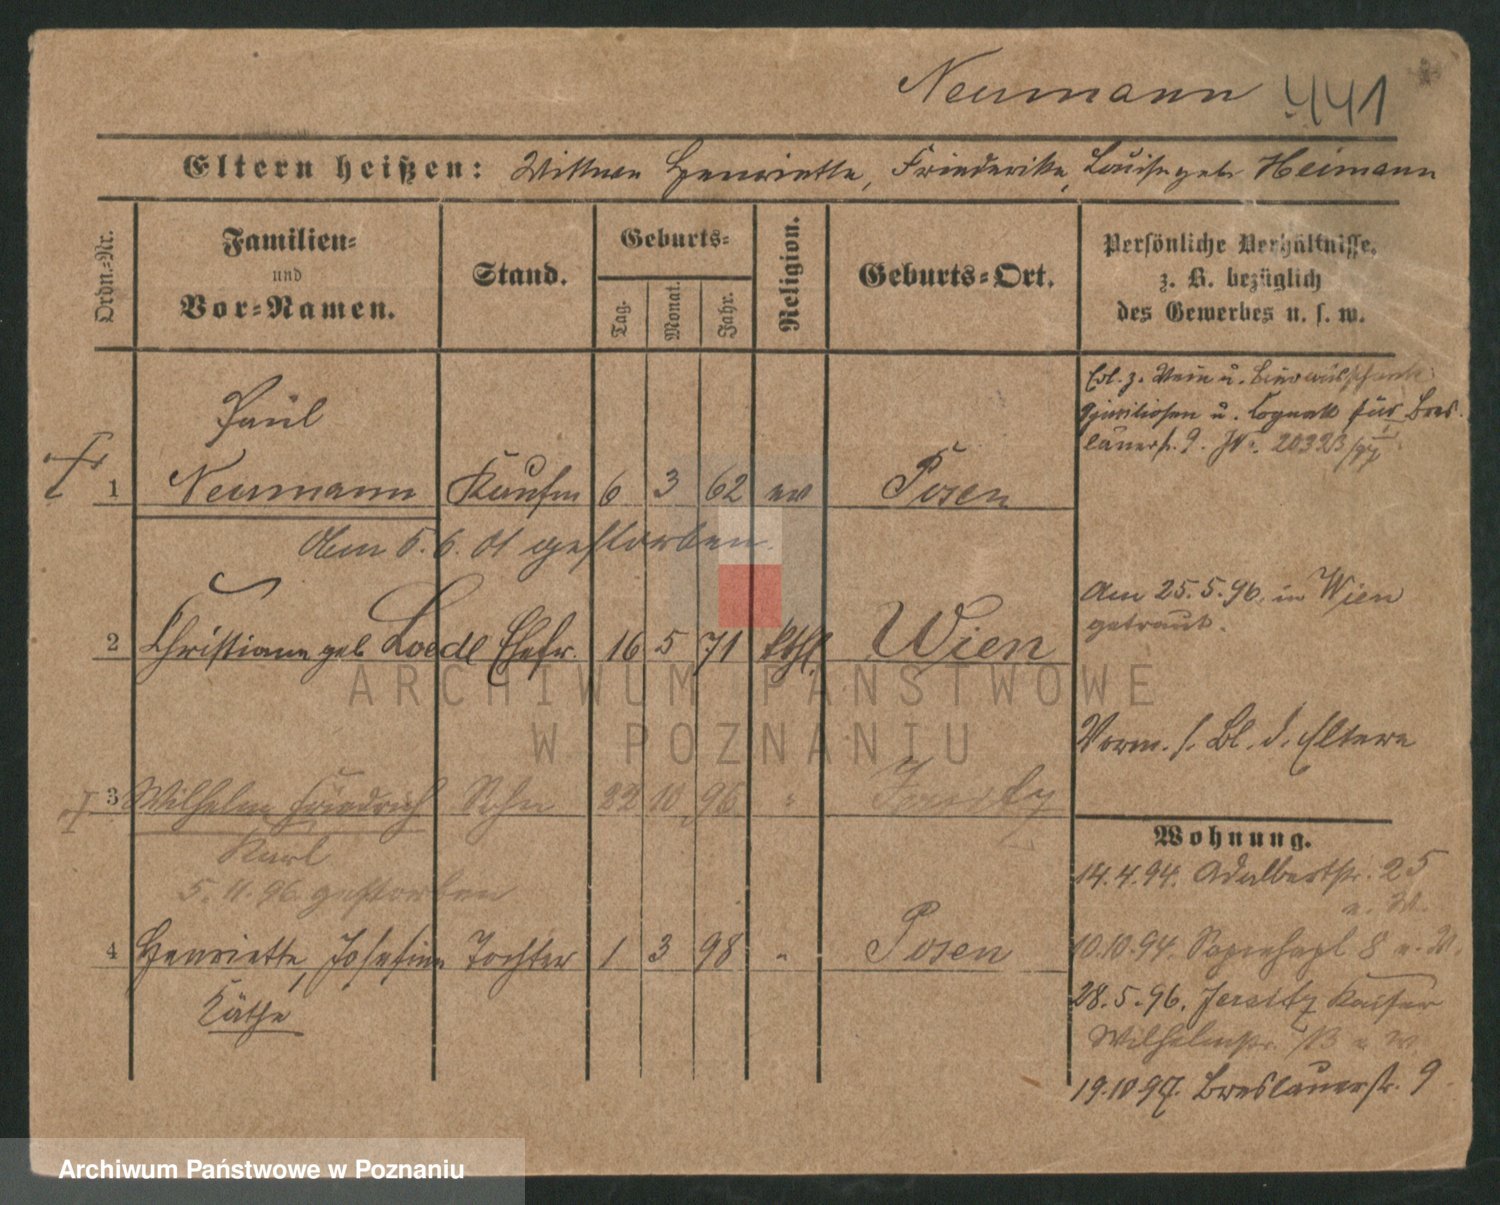 Neumann 441
Eltern heißen: Wittwe Henriette, Friederike, Louise geb. Heimann
Ordn.-Nr.
Familien-
und
Vor-Namen.
Stand.
Geburts-
Tag.
Monat.
Jahr.
Religion.
Geburts-Ort.
Persönliche Verhältnisse,
z. B. bezüglich
des Gewerbes u. s. w.
Erl. z. Wein u.
Spirituosen u. Cognak für Bres-
lauerstr. 9.
Paul
1 Neumann Kaufm 6 3 62 ev Posen
Am 5.6.01 gestorben.
2 Christiane geb Loedl Ehefr. 16 5 71 kthl. Wien
Am 25.5.96. in Wien
getraut.
Vorm. s. Bl. d. Eltern
3 Wilhelm Friedrich Sohn 22 10 96 " Jersitz
Karl
5.11.96 gestorben
Wohnung.
14.4.94. Adalbertstr. 25
b. W.
4 Henriette, Josefine Tochter 1 3 98 " Posen
Käthe
10.10.94. Sapiehapl 8 b. W.
28.5.96. Jersitz Kaiser
Wilhelmstr. b W
19.10.97. Breslauerstr. 9
ARCHIWUM PAŃSTWOWE
W POZNANIU
Archiwum Państwowe w Poznaniu